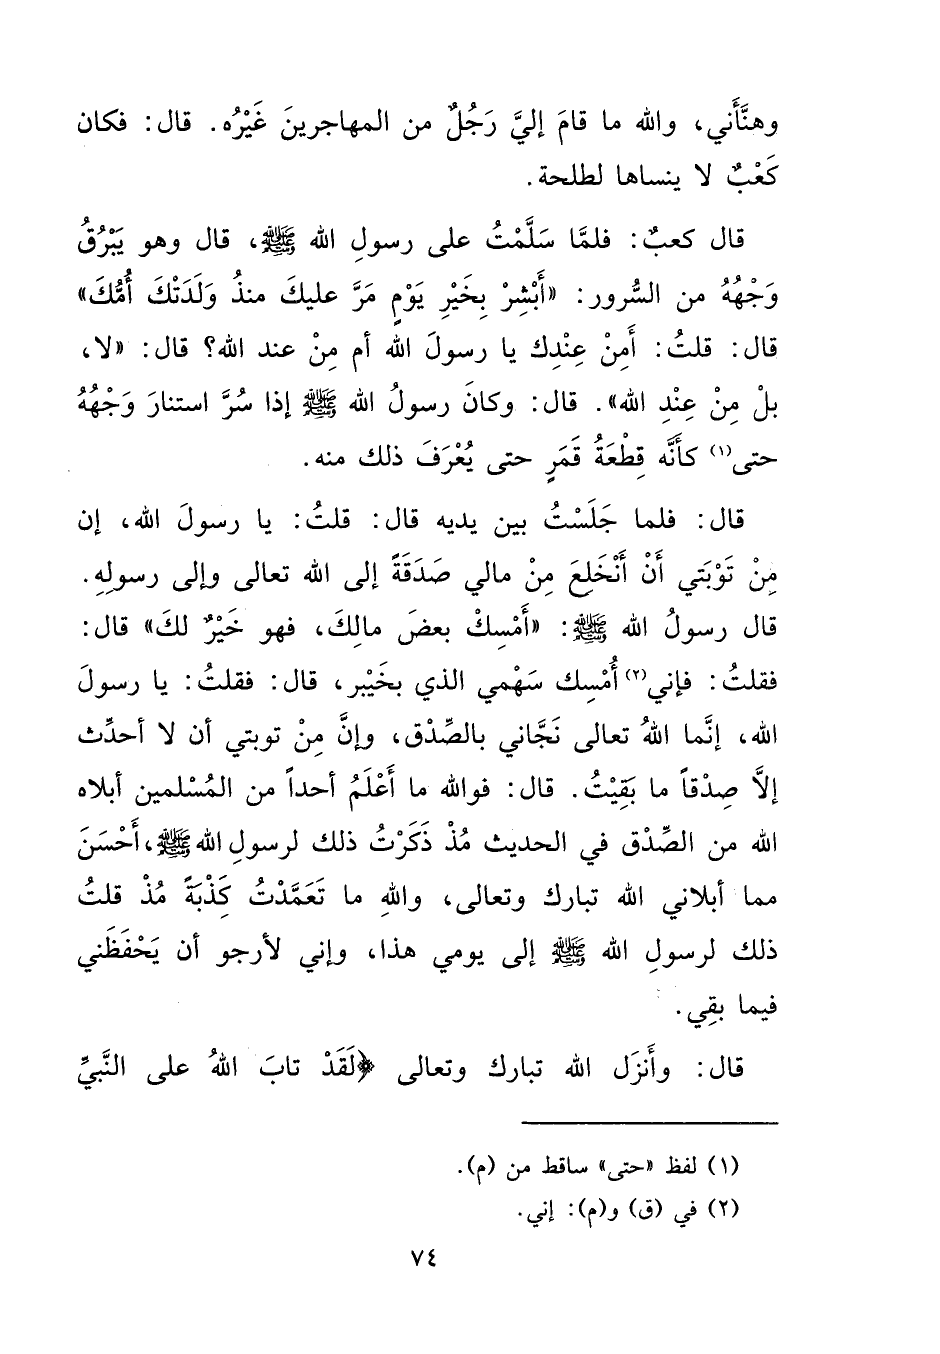 وهنَّأَني، والله ما قامَ إليَّ رَجُلٌ من المهاجرينَ غَيْرُه. قال: فكان
كَعْبٌ لا ينساها لطلحة.
قال كعبٌ: فلمَّا سَلَّمْتُ على رسولِ الله ﷺ، قال وهو يَبْرُقُ
وَجْهُهُ من السُّرور: «أَبْشِرْ بِخَيْرِ يَوْمٍ مَرَّ عليكَ منذُ وَلَدَتْكَ أُمُّكَ»
قال: قلتُ: أَمِنْ عِنْدِك يا رسولَ الله أم مِنْ عند الله؟ قال: «لا،
بلْ مِنْ عِنْدِ الله». قال: وكانَ رسولُ الله ﷺ إذا سُرَّ استنارَ وَجْهُهُ
حتى(١) كأَنَّه قِطْعَةُ قَمَرٍ حتى يُعْرَفَ ذلك منه.
قال: فلما جَلَسْتُ بين يديه قال: قلتُ: يا رسولَ الله، إن
مِنْ تَوْبَتي أَنْ أَنْخَلِعَ مِنْ مالي صَدَقَةً إلى الله تعالى وإلى رسولِهِ.
قال رسولُ الله ﷺ: «أَمْسِكْ بعضَ مالِكَ، فهو خَيْرٌ لكَ» قال:
فقلتُ: فإني(٢) أُمْسِك سَهْمي الذي بخَيْبر، قال: فقلتُ: يا رسولَ
الله، إنَّما اللهُ تعالى نَجَّاني بالصِّدْق، وإنَّ مِنْ توبتي أن لا أحدِّث
إلاَّ صِدْقاً ما بَقِيْتُ. قال: فوالله ما أَعْلَمُ أحداً من المُسْلمين أبلاه
الله من الصِّدْق في الحديث مُذْ ذَكَرْتُ ذلك لرسولِ الله ﷺ، أَحْسَنَ
مما أبلاني الله تبارك وتعالى، واللهِ ما تَعَمَّدْتُ كَذْبَةً مُذْ قلتُ
ذلك لرسولِ الله ﷺ إلى يومي هذا، وإني لأرجو أن يَحْفَظَني
فيما بقِي.
قال: وأَنزَل الله تبارك وتعالى ﴿لَقَدْ تابَ اللهُ على النَّبيِّ
(١) لفظ «حتى» ساقط من (م).
(٢) في (ق) و(م): إني.
٧٤